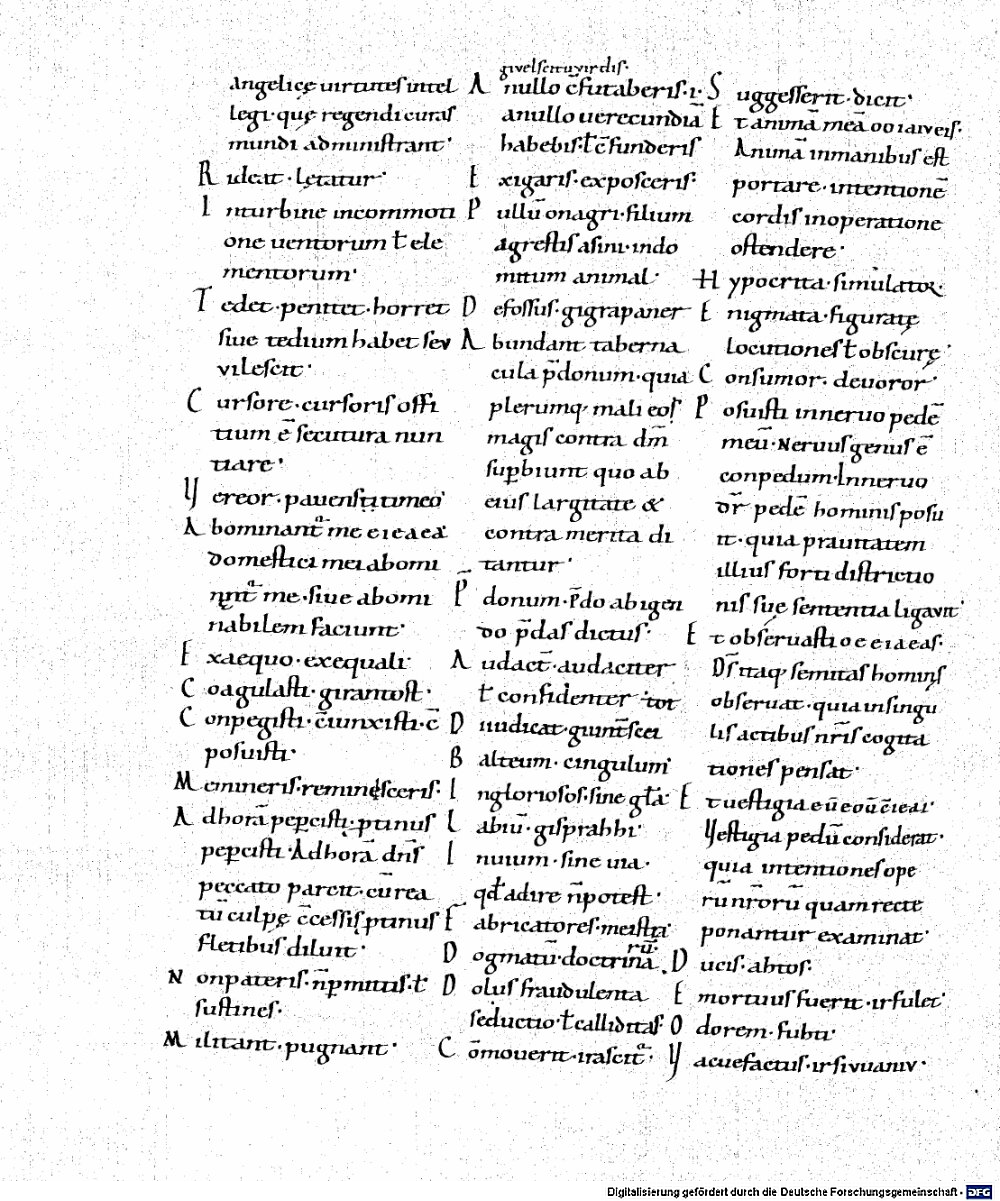 angelicę uirtutes intel
legi·quę regendi curas
mundi administrant·
Rideat·lętatur·
In turbine in commoti
one uentorum ł ele
mentorum·
Tedet·penitet·horret
siue tedium habet seu
vilescit·
Cursore·cursoris offi
tium ē secutura nun
tiare·
Vereor·pauens ł timeo
Abominant᷑ me
domestici mei abomi
nant᷑ me·siue abomi
nabilem faciunt·
Exaequo·exequali
Coagulasti·girantost·
Conpegisti·c̄iunxisti·c̄
posuisti·
Memineris·reminisceris·
Ad horā pepcisti·ptinus
pepcisti·Ad horā dn̄s
peccato parcit·cū rea
tū culpę c̄cessis ptinus
fletibus diluit·
Non pateris·n̄ pmittis·ł
sustines·
Militant·pugnant·
givelscituvirdis·
A nullo c̄futaberis·i·
a nullo uerecundiā
habebis·ł c̄funderis
Exigaris·exposceris·
Pullū onagri·filium
agrestis asini·indo
mitum animal·
Defossus·gigrapaner
Abundant taberna
cula p̄donum·quia
plerumq; mali eos
magis contra dm̄
supbiunt quo ab
eius largitate &
contra merita di
tantur·
P̄donum·p̄do abigen
do p̄das dictus·
Audact̄·audaciter
ł confidenter
Diiudicat·
Balteum·cingulum
Ingloriosos·sine gła
Labiū·gisprahhi·
Inuium·sine uia·
qđ adire n̄ potest·
Fabricatores·meistra
rū·
Dogmatū·doctrinā
Dolus fraudulenta
seductio·ł calliditas·
Cōmouerit·irascit᷑·
Suggesserit·dicit·
Et animā meā
Animā in manibus est
portare·intentionē
cordis in operatione
ostendere·
Hypocrita·simulator·
Enigmata·figuratę
locutiones ł obscurę·
Consumor·deuoror·
Posuisti in neruo pedē
meū·Neruus genus ē
conpedum·In neruo
dr̄ pedē hominis posu
it·quia prauitatem
illius forti districtio
nis suę sententia ligavit·
Et obseruasti
Ds̄ itaq; semitas hominis
obseruat·quia in singu
lis actibus nr̄is cogita
tiones pensat·
Et uestigia
Vestigia pedū considerat·
quia intentiones ope
rū nrorū quam recte
ponantur examinat·
Ducis·abtos·
Emortuus fuerit·irsulet·
Odorem·
Vacuefactus·
Digitalisierung gefördert durch die Deutsche Forschungsgemeinschaft - DFG